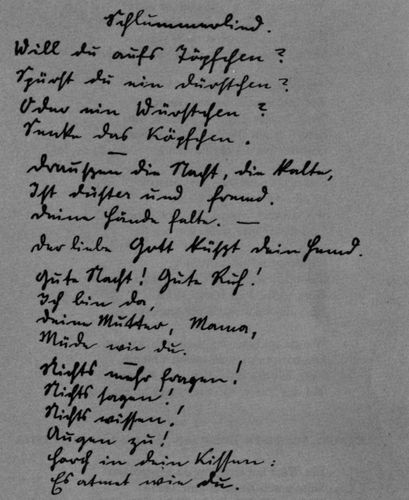 Schlummerlied.
Will du aufs Töpfchen?
Spürst du ein dürstchen?
Oder ein Würstchen?
Senke das Köpfchen.
—
Draußen die Nacht, die kalte,
Ist düster und fremd.
Deine Hände falte. —
Der liebe Gott küßt dein Hemd.
Gute Nacht! Gute Ruh!
Ich bin da,
Deine Mutter, Mama,
Müde wie du.
—
Nichts mehr fragen!
Nichts sagen!
Nichts wissen!
Augen zu!
Horch in dein Kissen:
Es atmet wie du.